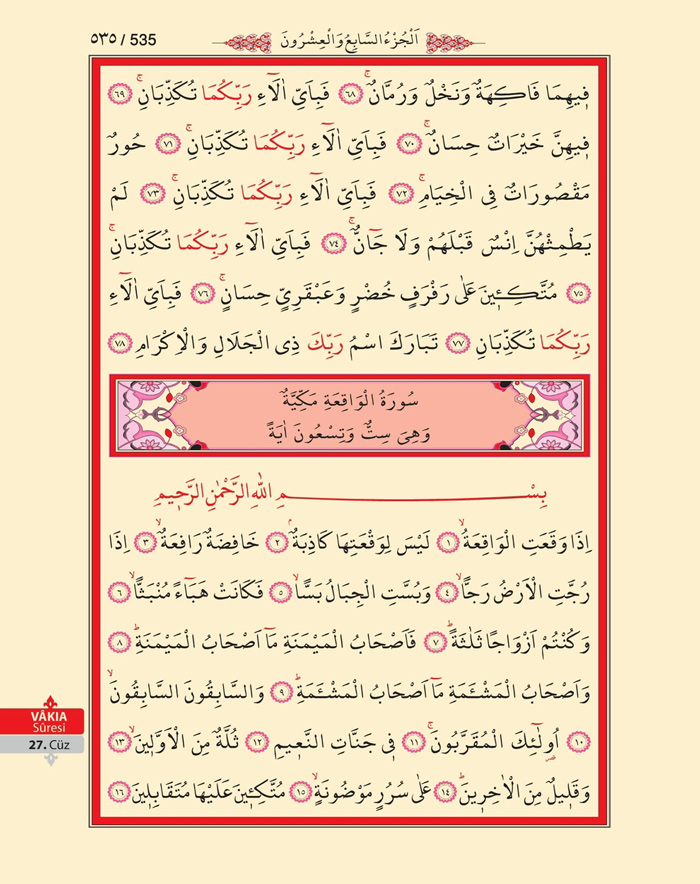 اَلْجُزْءُ السَّابِعُ وَالْعِشْرُونَ
٥٣٥ / 535
فٖيهِمَا فَاكِهَةٌ وَنَخْلٌ وَرُمَّانٌۚ ﴿٦٨﴾ فَبِاَيِّ اٰلَٓاءِ رَبِّكُمَا تُكَذِّبَانِۚ ﴿٦٩﴾
فٖيهِنَّ خَيْرَاتٌ حِسَانٌۚ ﴿٧٠﴾ فَبِاَيِّ اٰلَٓاءِ رَبِّكُمَا تُكَذِّبَانِۚ ﴿٧١﴾ حُورٌ
مَقْصُورَاتٌ فِي الْخِيَامِۚ ﴿٧٢﴾ فَبِاَيِّ اٰلَٓاءِ رَبِّكُمَا تُكَذِّبَانِۚ ﴿٧٣﴾ لَمْ
يَطْمِثْهُنَّ اِنْسٌ قَبْلَهُمْ وَلَا جَٓانٌّۚ ﴿٧٤﴾ فَبِاَيِّ اٰلَٓاءِ رَبِّكُمَا تُكَذِّبَانِۚ
﴿٧٥﴾ مُتَّكِـٖٔينَ عَلٰى رَفْرَفٍ خُضْرٍ وَعَبْقَرِيٍّ حِسَانٍۚ ﴿٧٦﴾ فَبِاَيِّ اٰلَٓاءِ
رَبِّكُمَا تُكَذِّبَانِ ﴿٧٧﴾ تَبَارَكَ اسْمُ رَبِّكَ ذِي الْجَلَالِ وَالْاِكْرَامِ ﴿٧٨﴾
سُورَةُ الْوَاقِعَةِ مَكِّيَّةٌ
وَهِيَ سِتٌّ وَتِسْعُونَ اٰيَةً
بِسْمِ اللّٰهِ الرَّحْمٰنِ الرَّحٖيمِ
اِذَا وَقَعَتِ الْوَاقِعَةُۙ ﴿١﴾ لَيْسَ لِوَقْعَتِهَا كَاذِبَةٌۢ ﴿٢﴾ خَافِضَةٌ رَافِعَةٌۙ ﴿٣﴾ اِذَا
رُجَّتِ الْاَرْضُ رَجًّاۙ ﴿٤﴾ وَبُسَّتِ الْجِبَالُ بَسًّاۙ ﴿٥﴾ فَكَانَتْ هَبَٓاءً مُنْبَثًّاۙ ﴿٦﴾
وَكُنْتُمْ اَزْوَاجًا ثَلٰثَةًۜ ﴿٧﴾ فَاَصْحَابُ الْمَيْمَنَةِ مَٓا اَصْحَابُ الْمَيْمَنَةِۜ ﴿٨﴾
وَاَصْحَابُ الْمَشْـَٔمَةِ مَٓا اَصْحَابُ الْمَشْـَٔمَةِۜ ﴿٩﴾ وَالسَّابِقُونَ السَّابِقُونَۙ
﴿١٠﴾ اُو۬لٰٓئِكَ الْمُقَرَّبُونَۚ ﴿١١﴾ فٖي جَنَّاتِ النَّعٖيمِ ﴿١٢﴾ ثُلَّةٌ مِنَ الْاَوَّلٖينَۙ ﴿١٣﴾
وَقَلٖيلٌ مِنَ الْاٰخِرٖينَۜ ﴿١٤﴾ عَلٰى سُرُرٍ مَوْضُونَةٍۙ ﴿١٥﴾ مُتَّكِـٖٔينَ عَلَيْهَا مُتَقَابِلٖينَ ﴿١٦﴾
VÂKIA
Sûresi
27. Cüz